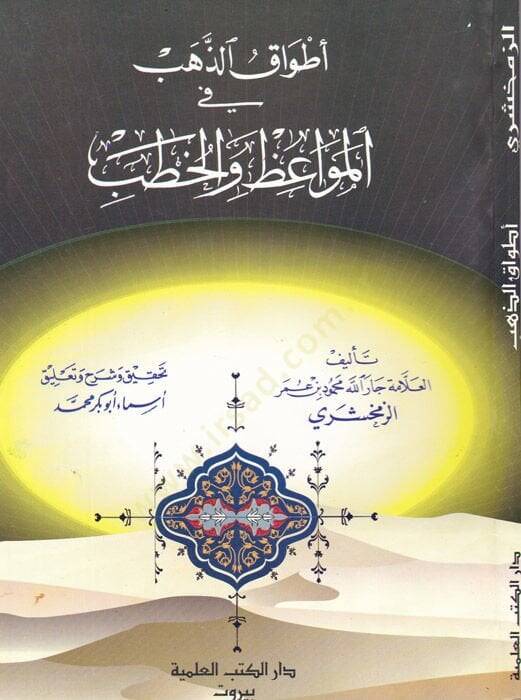 أطواق الذهب
في
المواعظ والخطب
تأليف
العلامة جار الله محمود بن عمر
الزمخشري
تحقيق وشرح وتعليق
أسماء أبو بكر محمد
دار الكتب العلمية
بيروت
الزمخشري
أطواق الذهب
دار الكتب العلمية